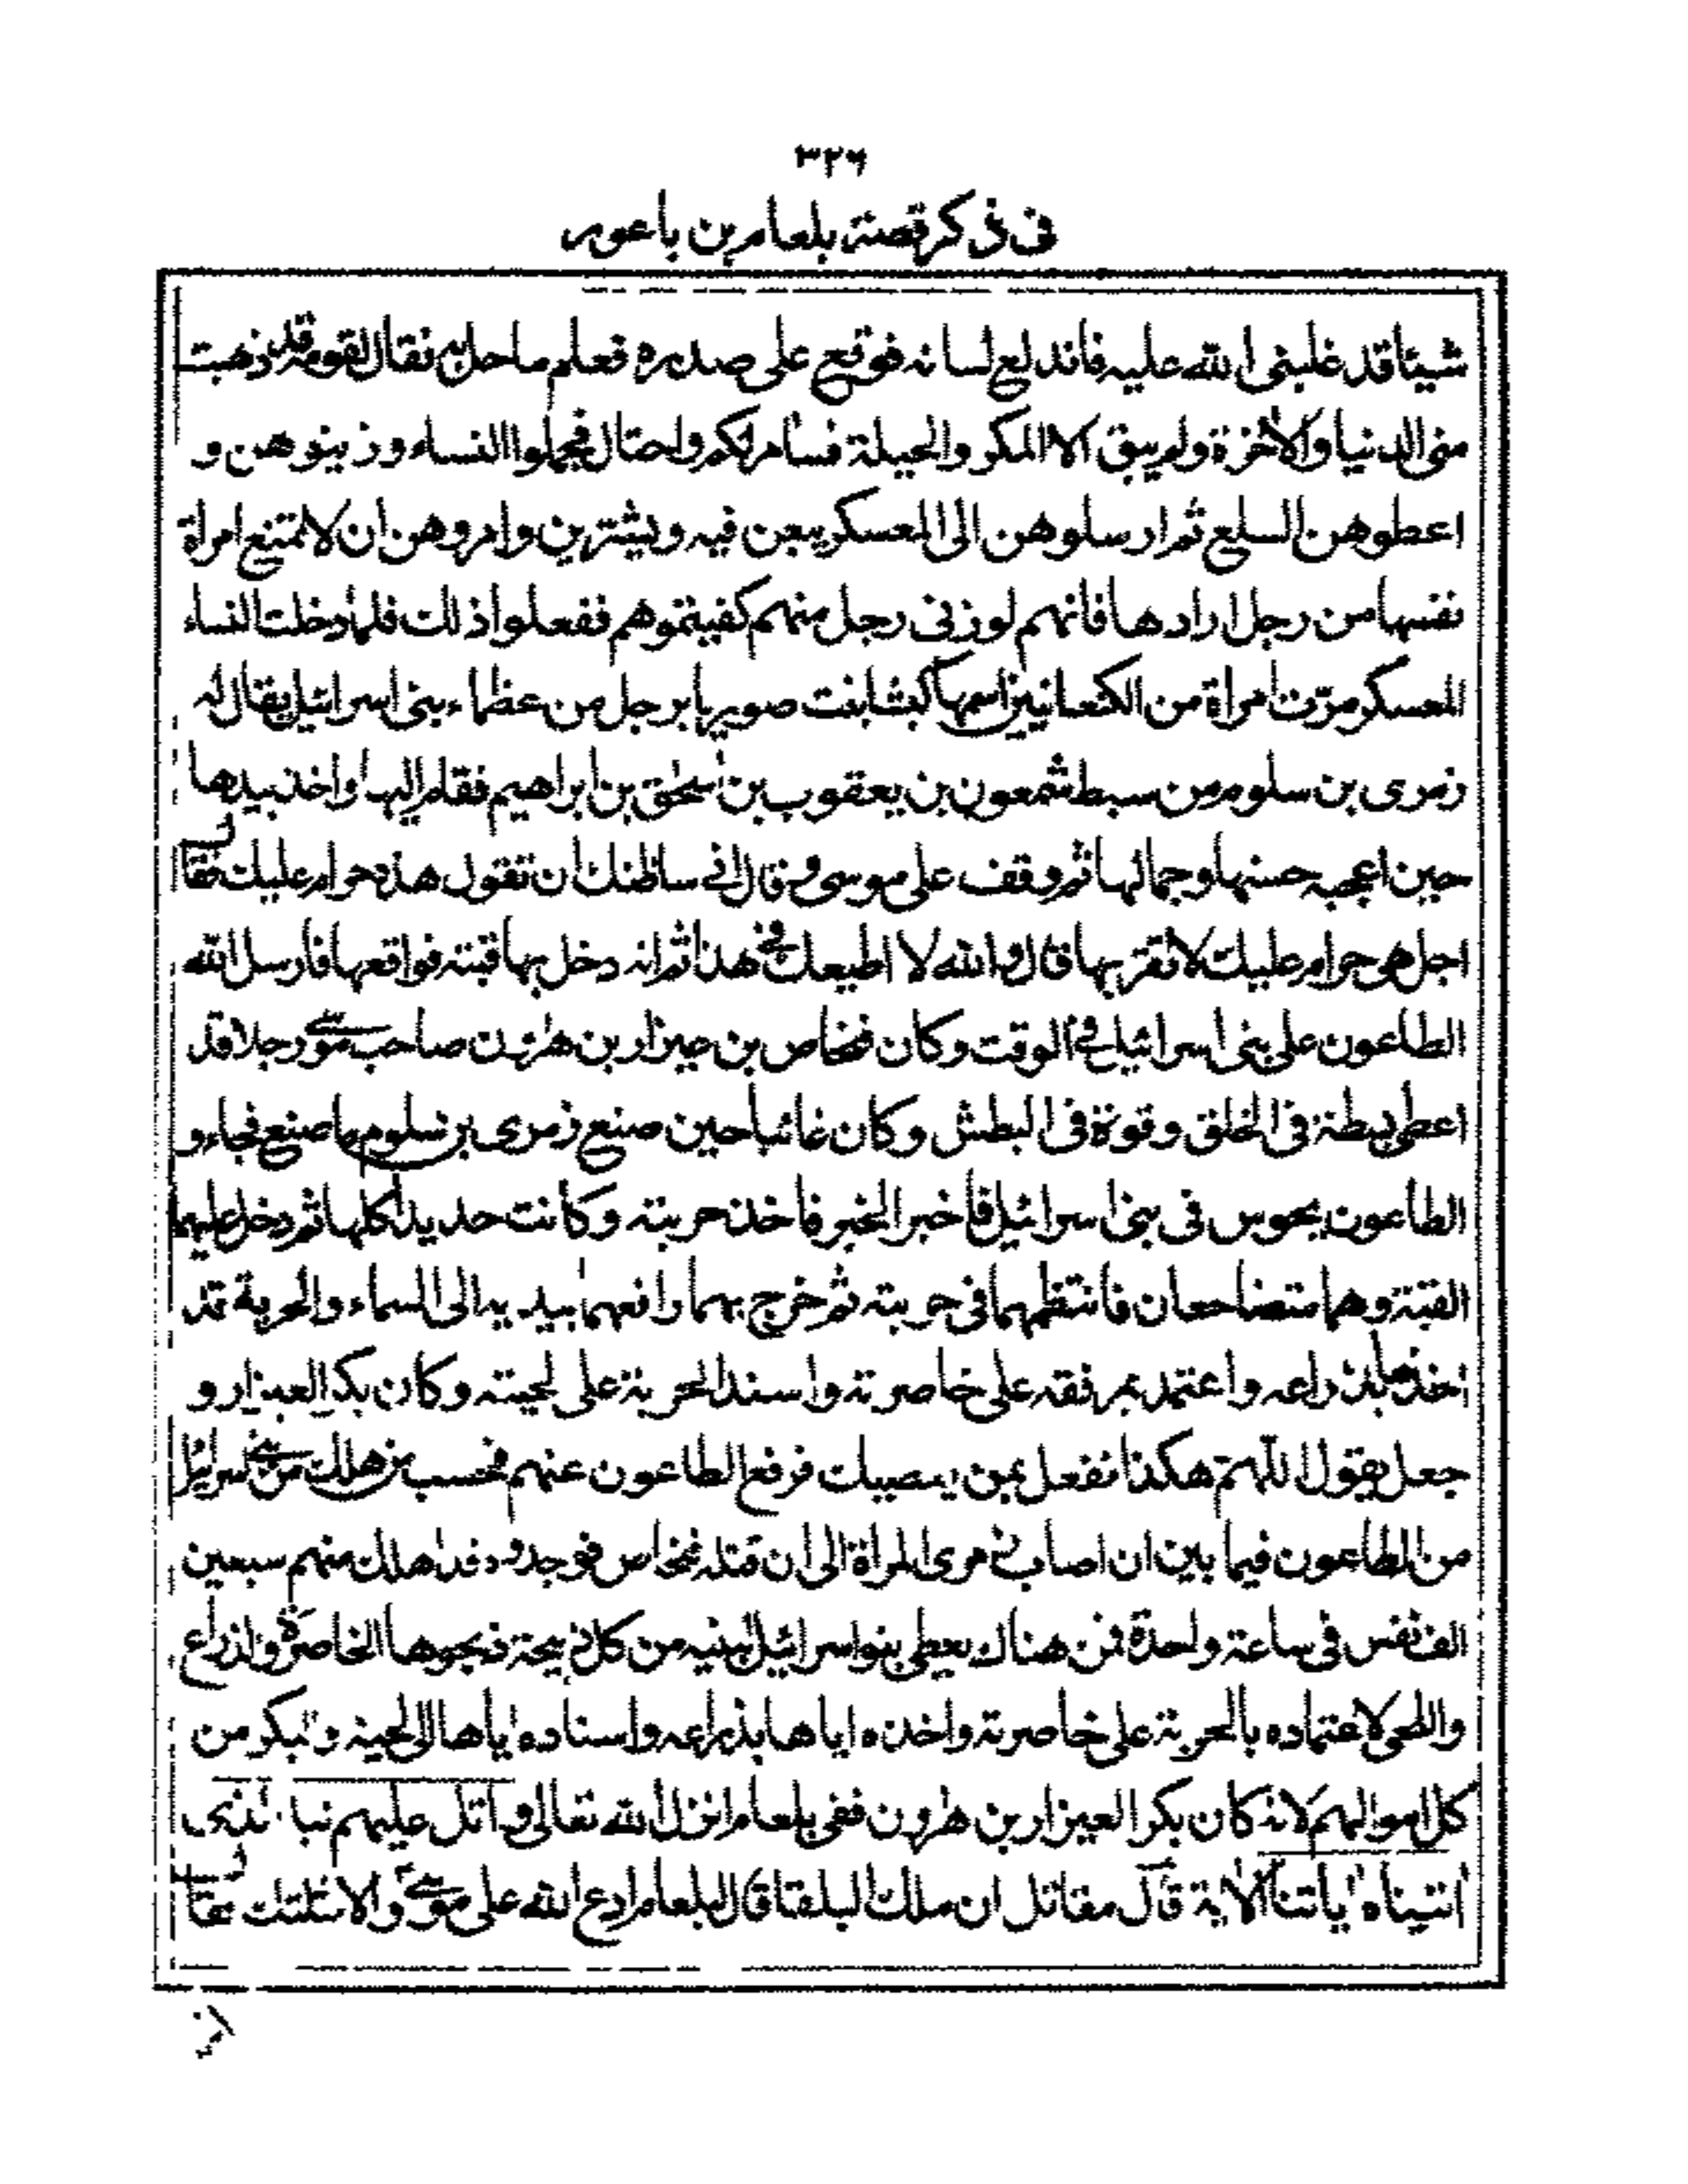 ٣٢٦
فى ذكر قصة بلعام بن باعور
شيئا قد غلبنى الله عليه فاندلع لسانه فوقع على صدره فعلم ما حل به فقال لقومه قد ذهبت
منى الدنيا والأخرة ولم يبق الا المكر والحيلة فسامكر لكم واحتال فجملوا النساء وزينوهن و
اعطوهن السلع ثم ارسلوهن الى المعسكر يبعن فيه ويشترين وامروهن ان لا تمتنع امراة
نفسها من رجل ارادها فانهم لو زنى رجل منهم كفيتموهم ففعلوا ذلك فلما دخلت النساء
المعسكر مرّت امراة من الكنعانيين اسمها كبشا بنت صوريا برجل من عظماء بنى اسرائيل يقال له
زمرى بن سلوم من سبط شمعون بن يعقوب بن اسحٰق بن ابراهيم فقام اليها واخذ بيدها
حين اعجبه حسنها وجمالها ثم وقف على موسى وقال انى ساظنك ان تقول هذه حرام عليك فقال
اجل هى حرام عليك لا تقربها قال والله لا اطيعك فى هذا ثم انه دخل بها قبته فواقعها فارسل الله
الطاعون على بنى اسرائيل فى الوقت وكان فنحاص بن عيزار بن هٰرون صاحب موسى رجلا قد
اعطى بسطة فى الخلق وقوة فى البطش وكان غائبا حين صنع زمرى بن سلوم ما صنع فجاء و
الطاعون يحوس فى بنى اسرائيل فاخبر الخبر فاخذ حربته وكانت حديدا كلها ثم دخل عليهما
القبة وهما متضاجعان فانتظمهما فى حربته ثم خرج بهما رافعهما بيديه الى السماء والحربة قد
اخذها بذراعه واعتمد بمرفقه على خاصرته واسند الحربة على لحيته وكان بكر العيزار و
جعل يقول اللّٰهم هكذا نفعل بمن يعصيك فرفع الطاعون عنهم فحسب من هلك من بنى اسرائيل
من الطاعون فيما بين ان اصاب زمرى المراة الى ان قتله فنحاص فوجدوه قد هلك منهم سبعين
الف نفس فى ساعة واحدة فمن هناك يعطى بنو اسرائيل بنيه من كل ذبيحة ذبحوها الخاصرة والذراع
واللحى لاعتماده بالحربة على خاصرته واخذه اياها بذراعه واسناده اياها الى لحيته والبكر من
كل اموالهم لانه كان بكر العيزار بن هٰرون ففى بلعام انزل الله تعالى واتل عليهم نبا الذى
اتيناه اياتنا الاية قال مقاتل ان ملك البلقا قال لبلعام ادع الله على موسى والا قتلتك فقال